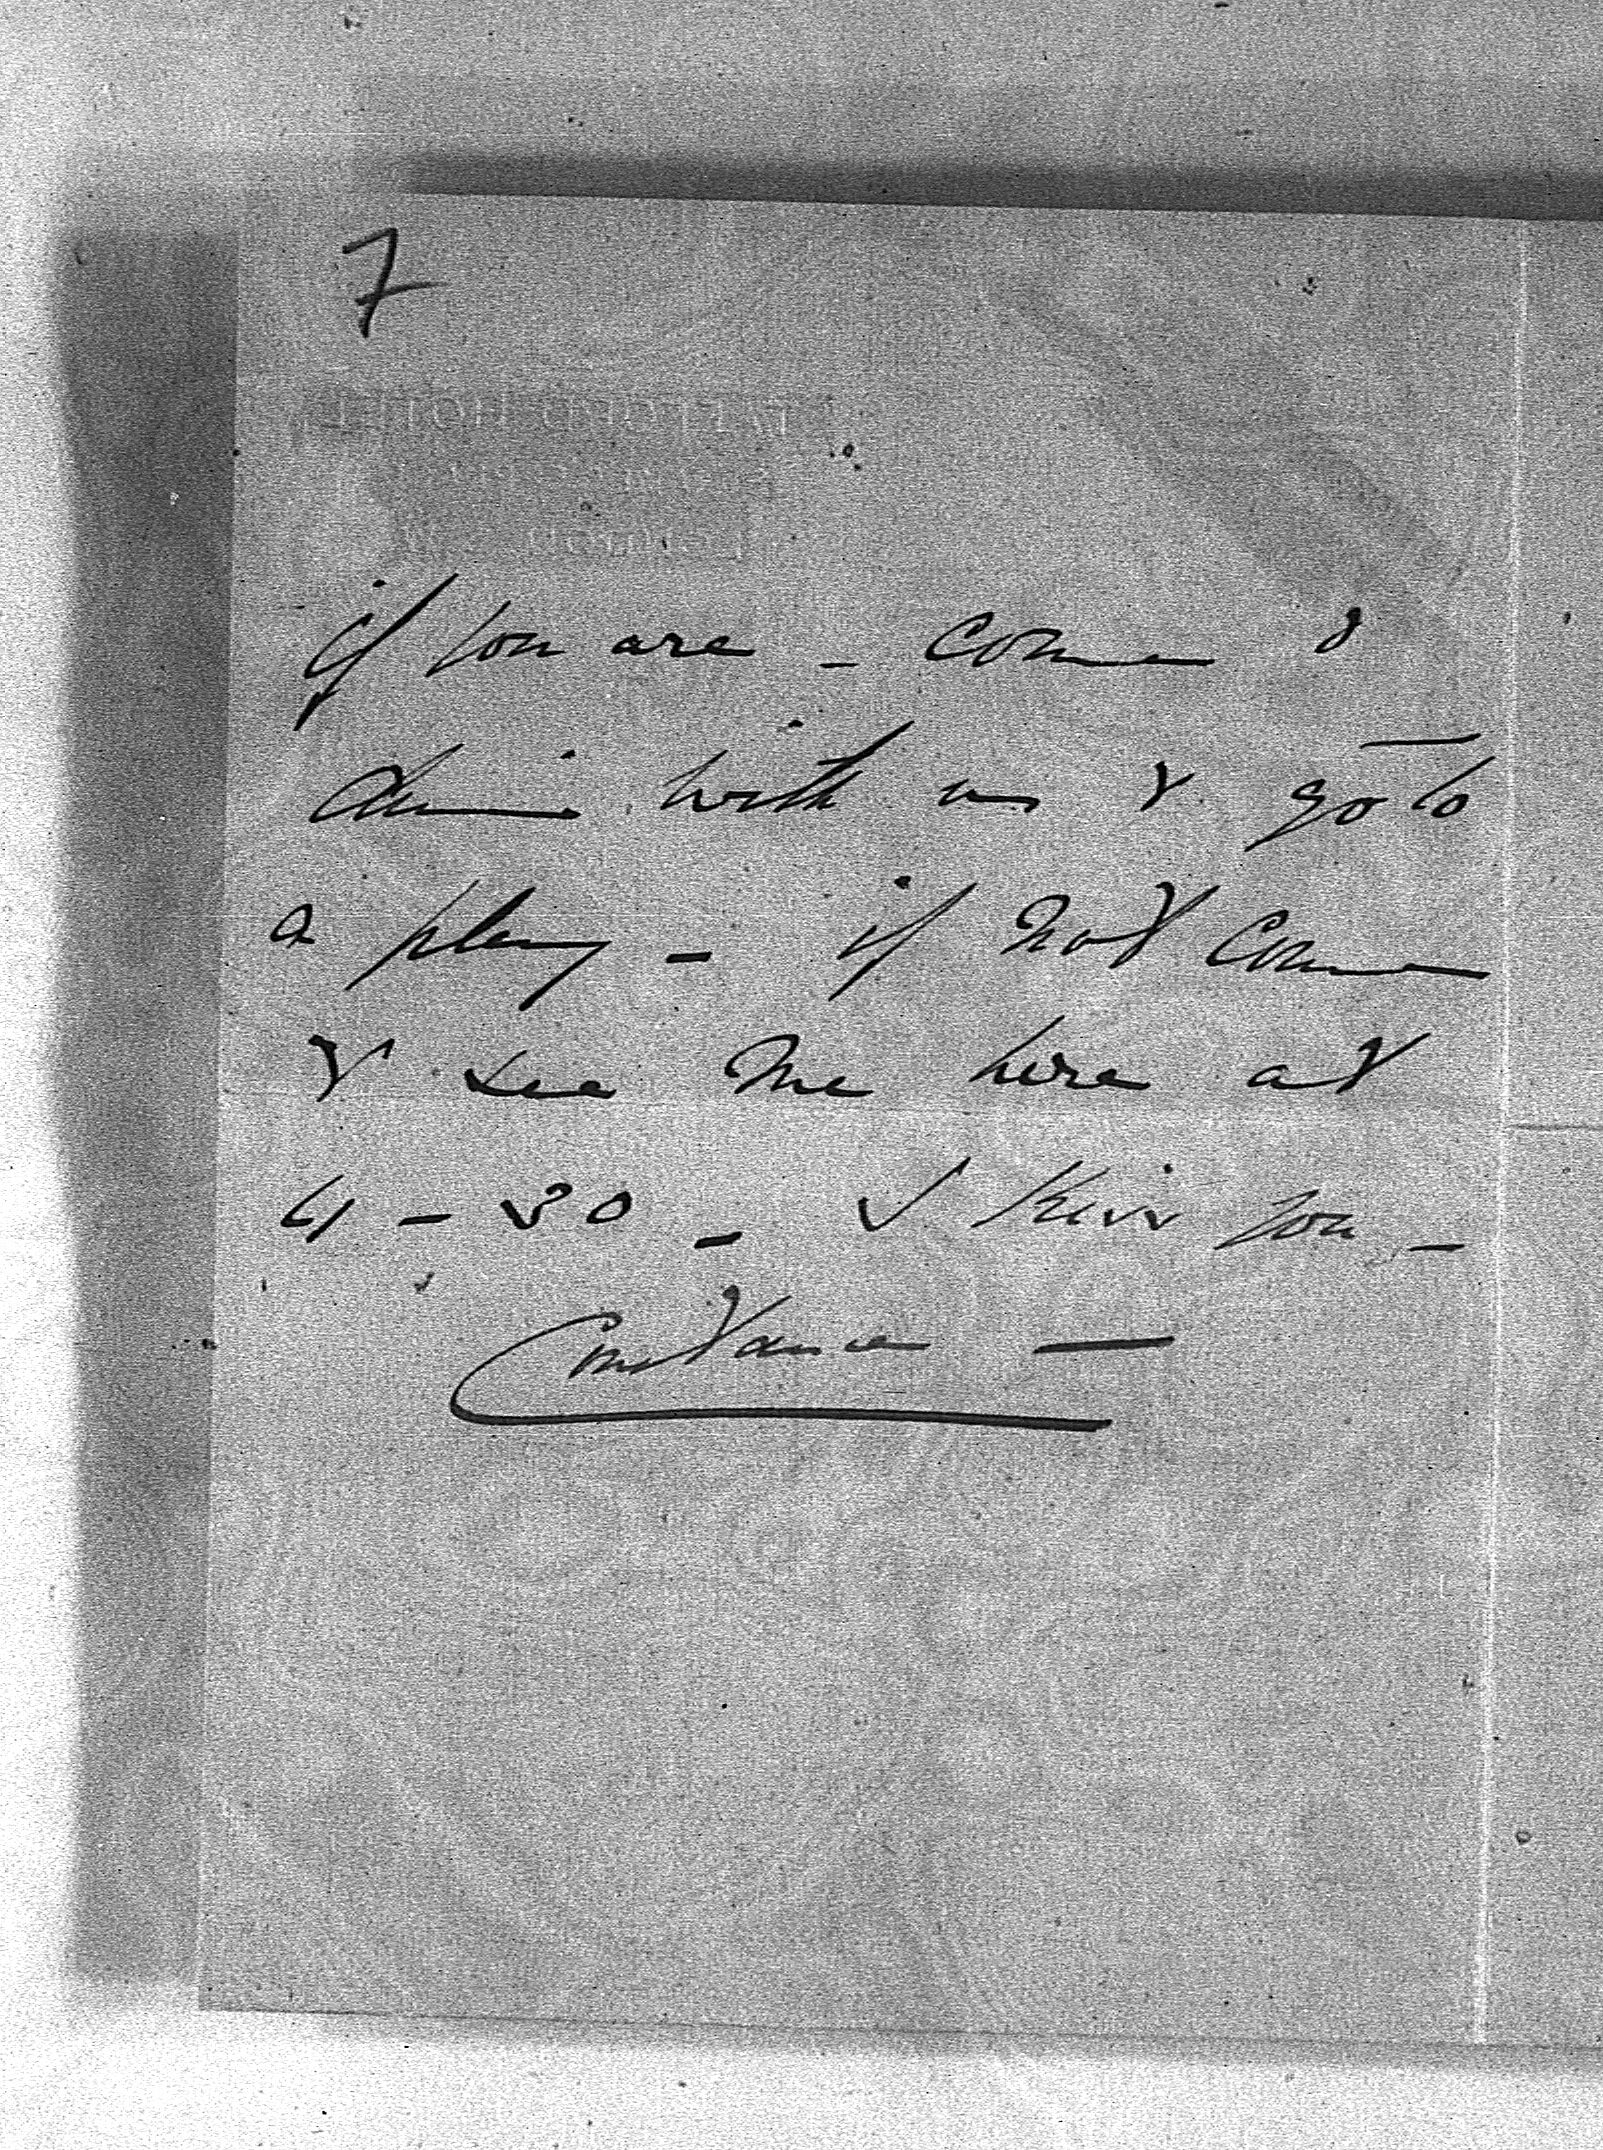 7
if you are - come &
dine with us & go to
a play - if not come
& see me here at
4 - 30 - I kiss you -
Constance -